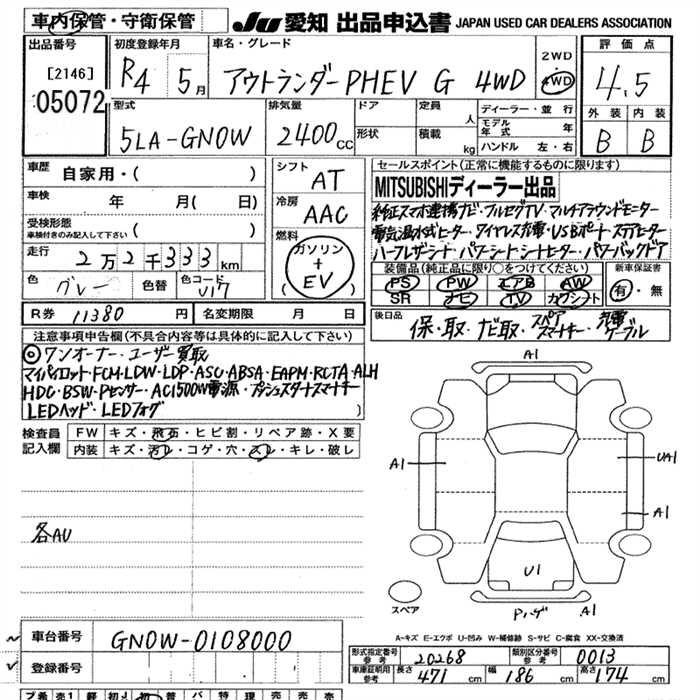 車内保管・守衛保管
JU 愛知 出品申込書 JAPAN USED CAR DEALERS ASSOCIATION
出品番号
[2146]
05072
初度登録年月
R4 5月
車名・グレード
アウトランダーPHEV G 4WD
2WD
4WD
評価点
4.5
外装 内装
B B
型式
5LA-GN0W
排気量
2400cc
ドア
形状
定員 人
積載 kg
ディーラー・並行
モデル年式 年
ハンドル 左・右
車歴
自家用・( )
車検 年 月( 日)
受検形態
車検付きのみ記入して下さい ( )
走行 2万2千333km
色 グレー 色替 色コード U17
シフト AT
冷房 AAC
燃料
ガソリン
+
EV
( )
セールスポイント(正常に機能するものに限ります)
MITSUBISHIディーラー出品
純正スマホ連携ナビ・フルセグTV・マルチアラウンドモニター
電気温水式ヒーター・ワイヤレス充電・USBポート・ステアヒーター
ハーフレザーシート・パワーシート・シートヒーター・パワーバックドア
装備品(純正品に限り○をつけてください) 新車保証書
PS PW エアB AW
SR ナビ TV カワシート
有・無
R券 11380 円 名変期限 月 日
後日品
保・取・ナビ取・スペアスマートキー・充電ケーブル
注意事項申告欄(不具合内容等は具体的に記入して下さい)
◎ワンオーナー・ユーザー買取
マイパイロット・FCM・LDW・LDP・ASC・ABSA・EAPM・RCTA・ALH
HDC・BSW・Pセンサー・AC1500W電源・プッシュスタートスマートキー
LEDヘッド・LEDフォグ )
検査員
記入欄
FW キズ・飛石・ヒビ割・リペア跡・X要
内装 キズ・汚レ・コゲ・穴・スレ・キレ・破レ
各AU
A1
A1
UA1
A1
U1
A1
スペア
A-キズ E-エクボ U-凹み W-補修跡 S-サビ C-腐食 XX-交換済
車台番号 GN0W-0108000
登録番号
形式指定番号 参考 20268
類別区分番号 参考 0013
車体証明用 参考 長さ 471 cm 幅 186 cm 高さ 174 cm